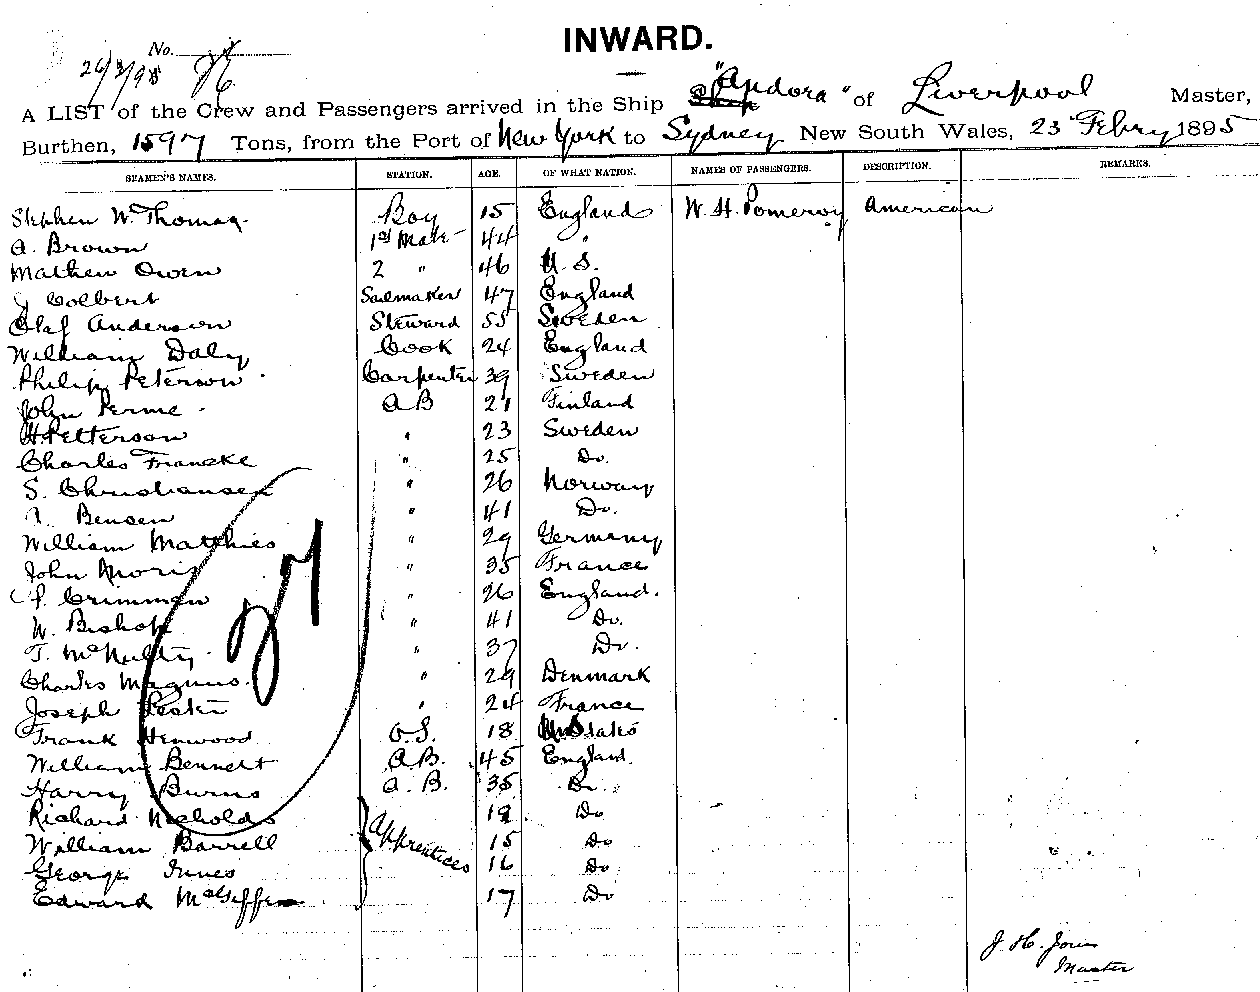 INWARD.
No.
26/2/95 96
A LIST of the Crew and Passengers arrived in the Ship "Andora" of Liverpool Master,
Burthen, 1597 Tons, from the Port of New York to Sydney New South Wales, 23 Febry 1895
SEAMEN'S NAMES. STATION. AGE. OF WHAT NATION. NAMES OF PASSENGERS. DESCRIPTION. REMARKS.
Stephen W Thomas Boy 15 England W. H. Pomeroy American
A. Brown 1st Mate 44 "
Mathew Owen 2 " 46 U. S.
J Colbert Sailmaker 47 England
Olaf Anderson Steward 55 Sweden
William Daly Cook 24 England
Philip Peterson Carpenter 39 Sweden
John Perme A B 21 Finland
H. Petterson " 23 Sweden
Charles Francke " 25 Do.
S. Christiansen " 26 Norway
Bensen " 41 Do.
William Matthies " 29 Germany
John Moris " 35 France
Crimmen " 26 England.
W. Bishop " 41 Do.
T. McNulty " 37 Do.
Charles Magnus " 29 Denmark
Joseph " 24 France
Frank Henwood O.S. 18 Un States
William Bennett A.B. 45 England
Harry Burns A. B. 35 Do.
Richard Nicholds Apprentices 18 Do
William Barrell 15 Do
George Innes 16 Do
Edward 17 Do
27
J. H. Jones
Master